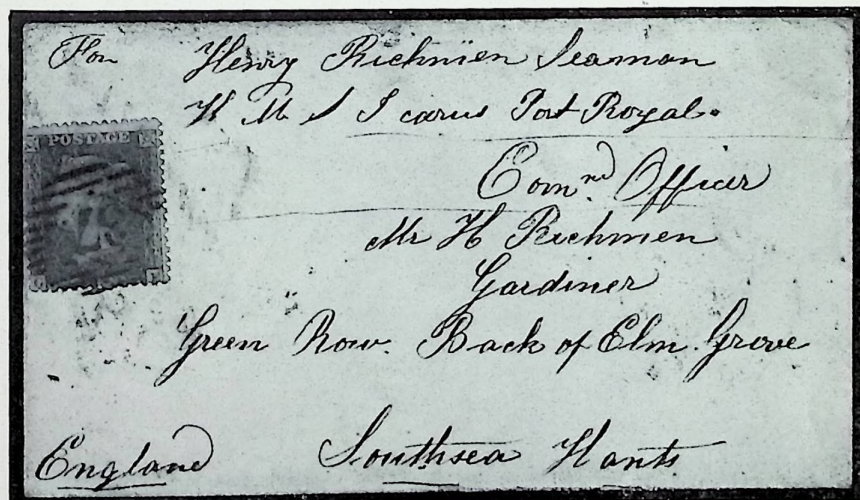 For Henry Richmen Seaman
H M S Icarus Port Royal.
POSTAGE
Comnd. Officer
Mr H Richmen
Gardiner
Green Row. Back of Elm. Grove
England Southsea Hants